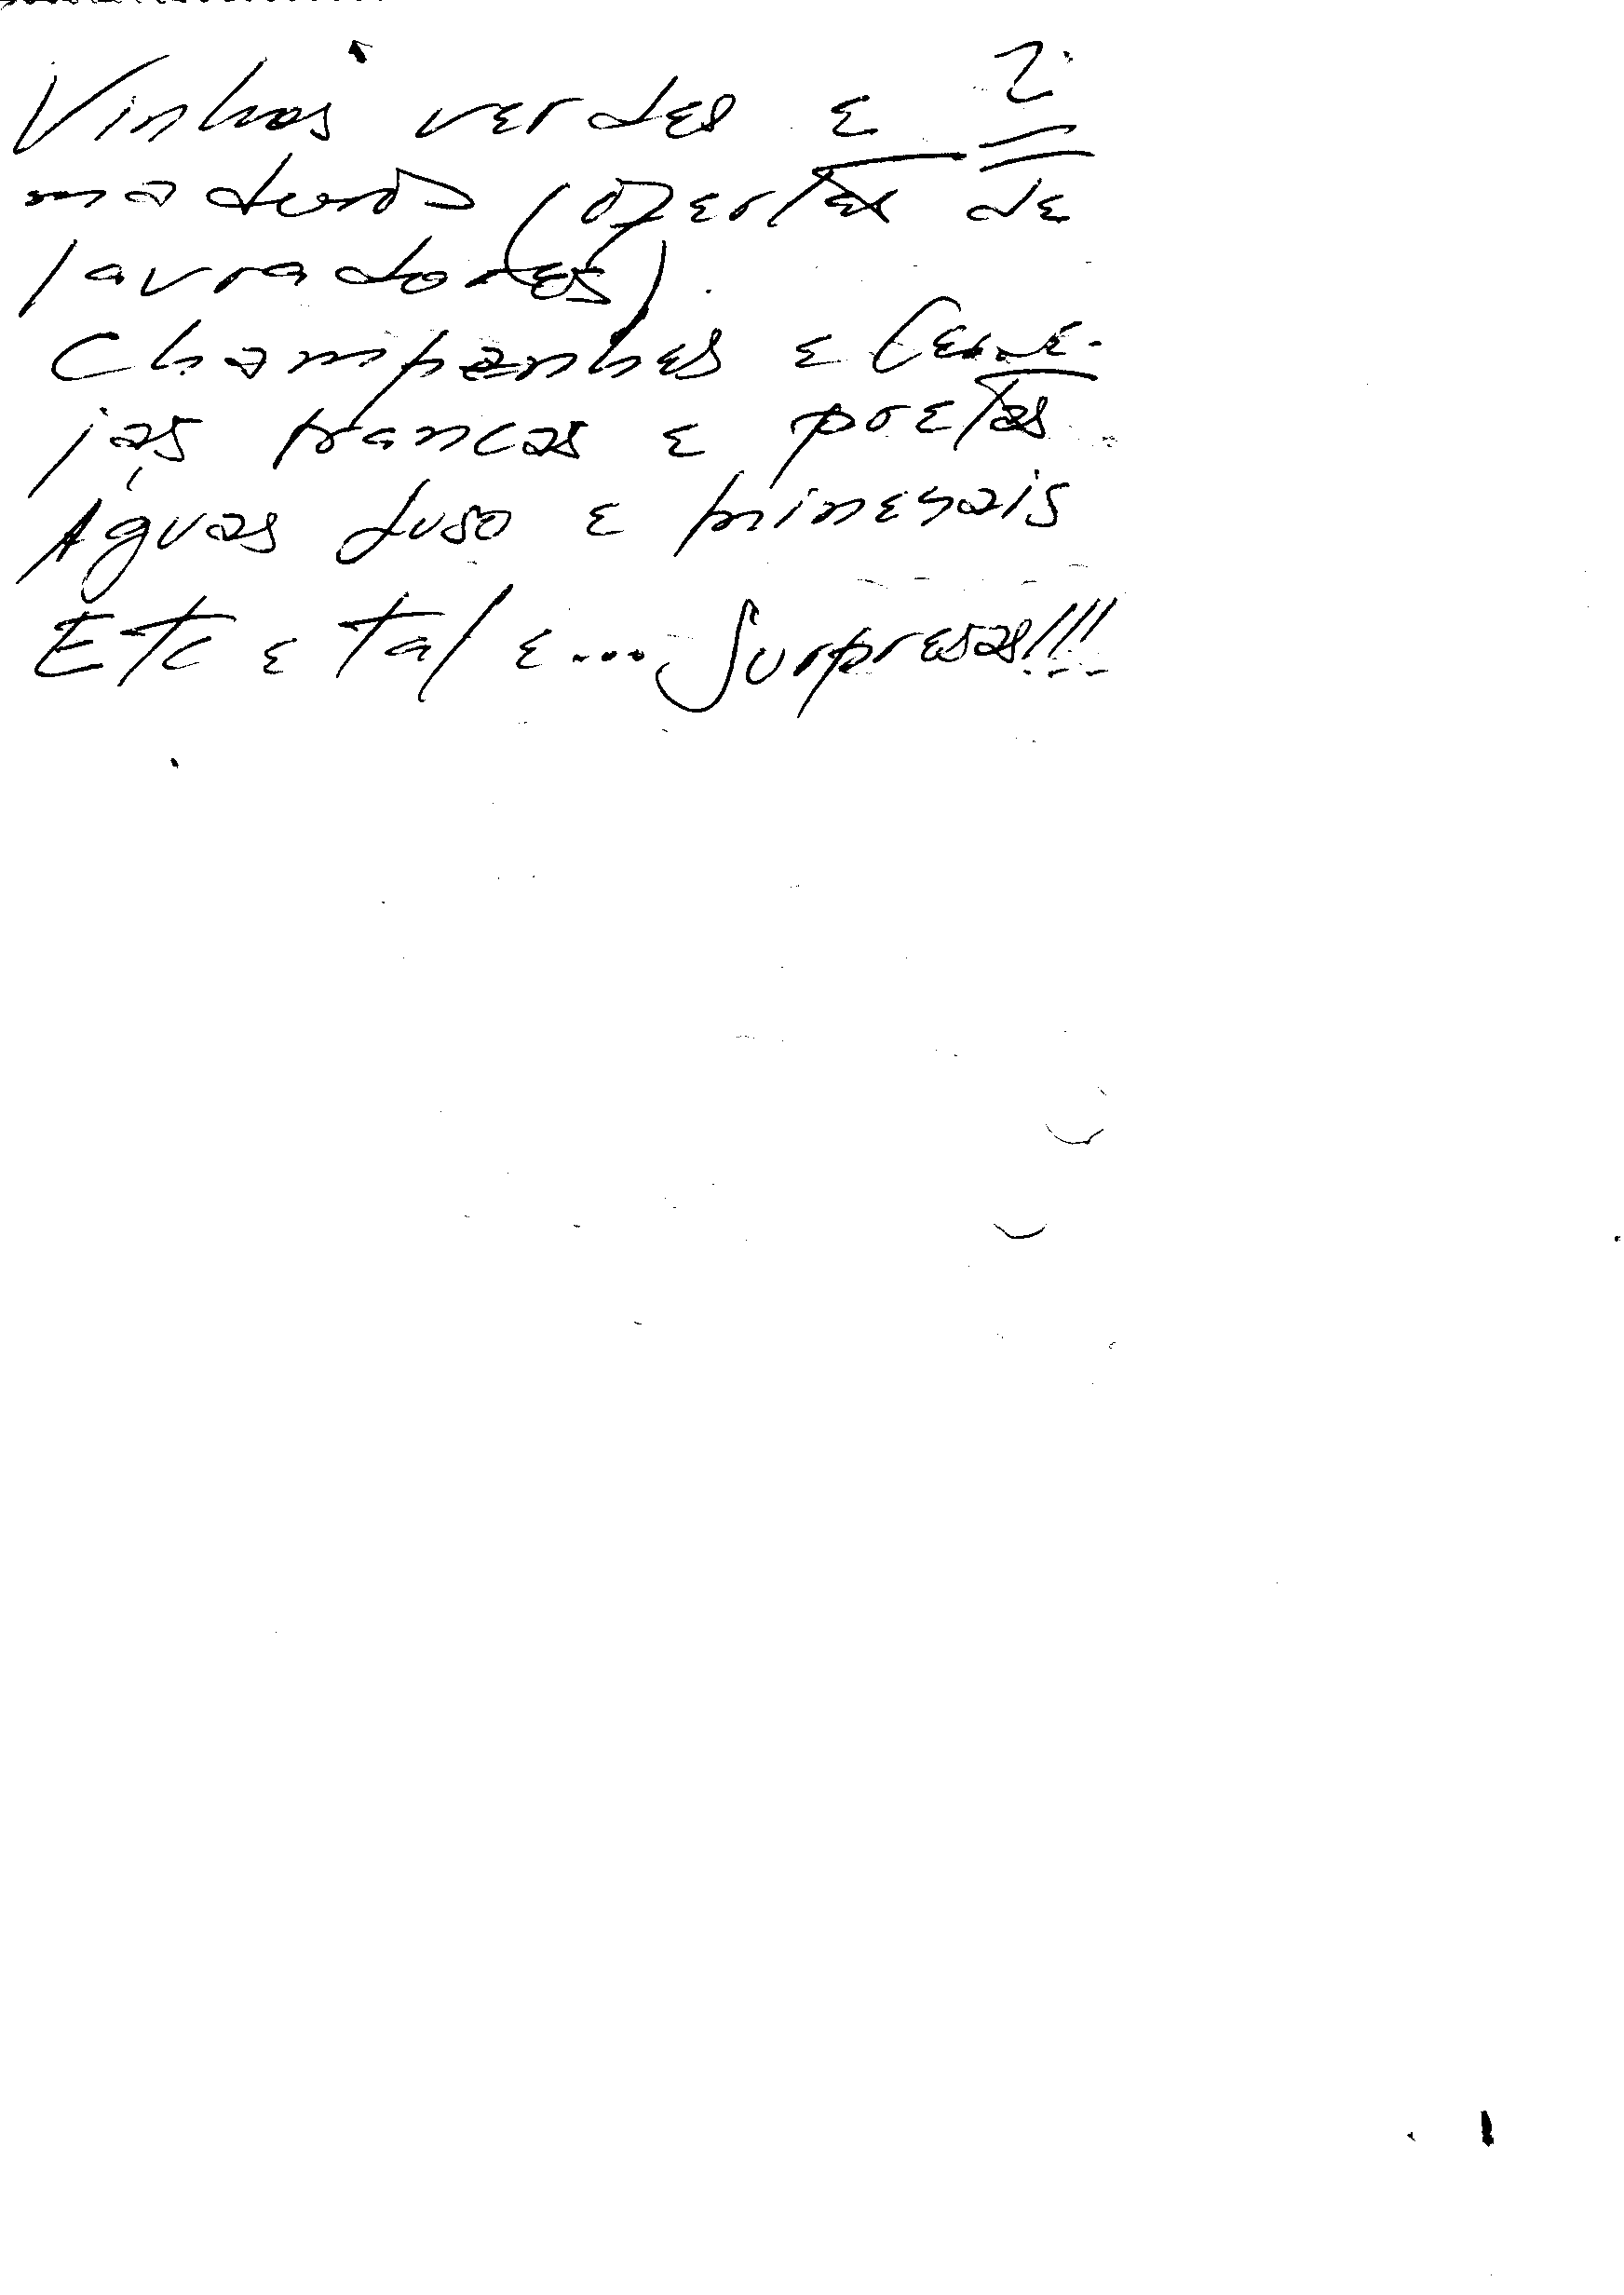 2.
Vinhos verdes e
maduros (ofertas de
lavradores).
Champanhes e Cerve-
jas brancas e pretas
Águas Luso e minerais
Etc e tal e... Surpresas!!!